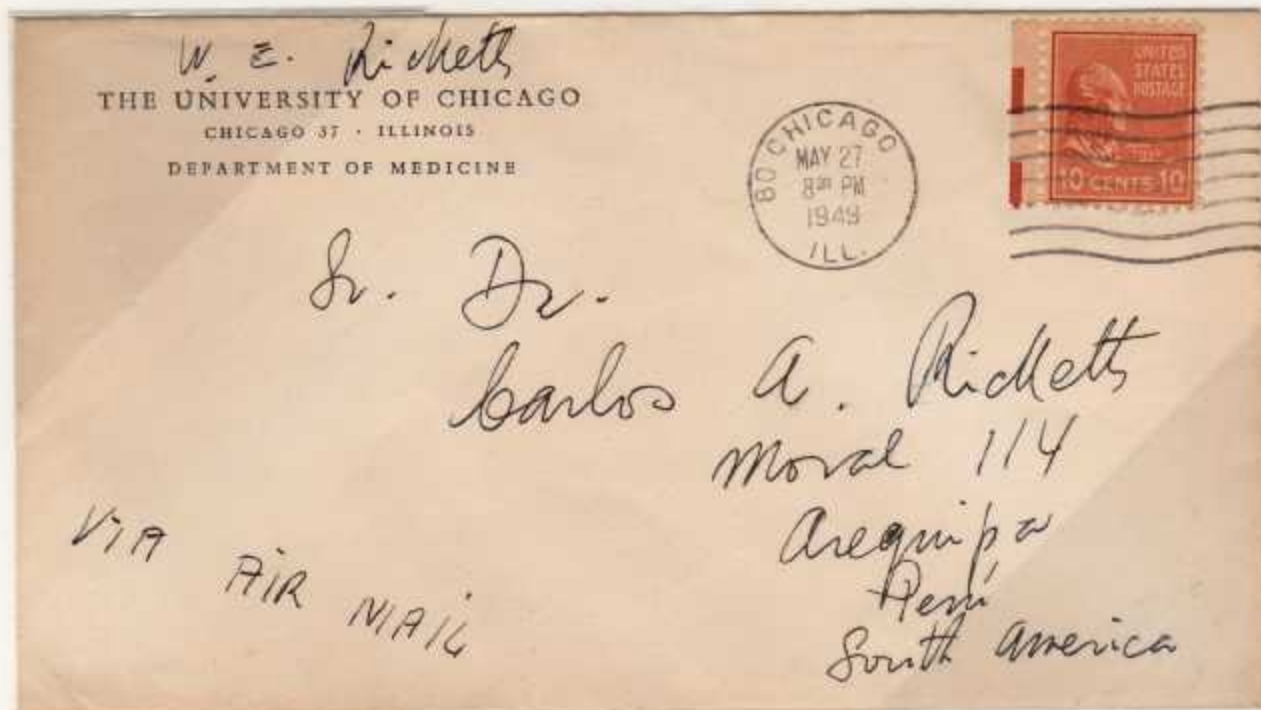 W. E. Ricketts
THE UNIVERSITY OF CHICAGO
CHICAGO 37 · ILLINOIS
DEPARTMENT OF MEDICINE
CHICAGO
MAY 27
8 PM
1949
ILL.
UNITED
STATES
POSTAGE
10 CENTS 10
Sr. Dr.
Carlos A. Ricketts
Moral 114
Arequipa
Perú
South America
VIA AIR MAIL